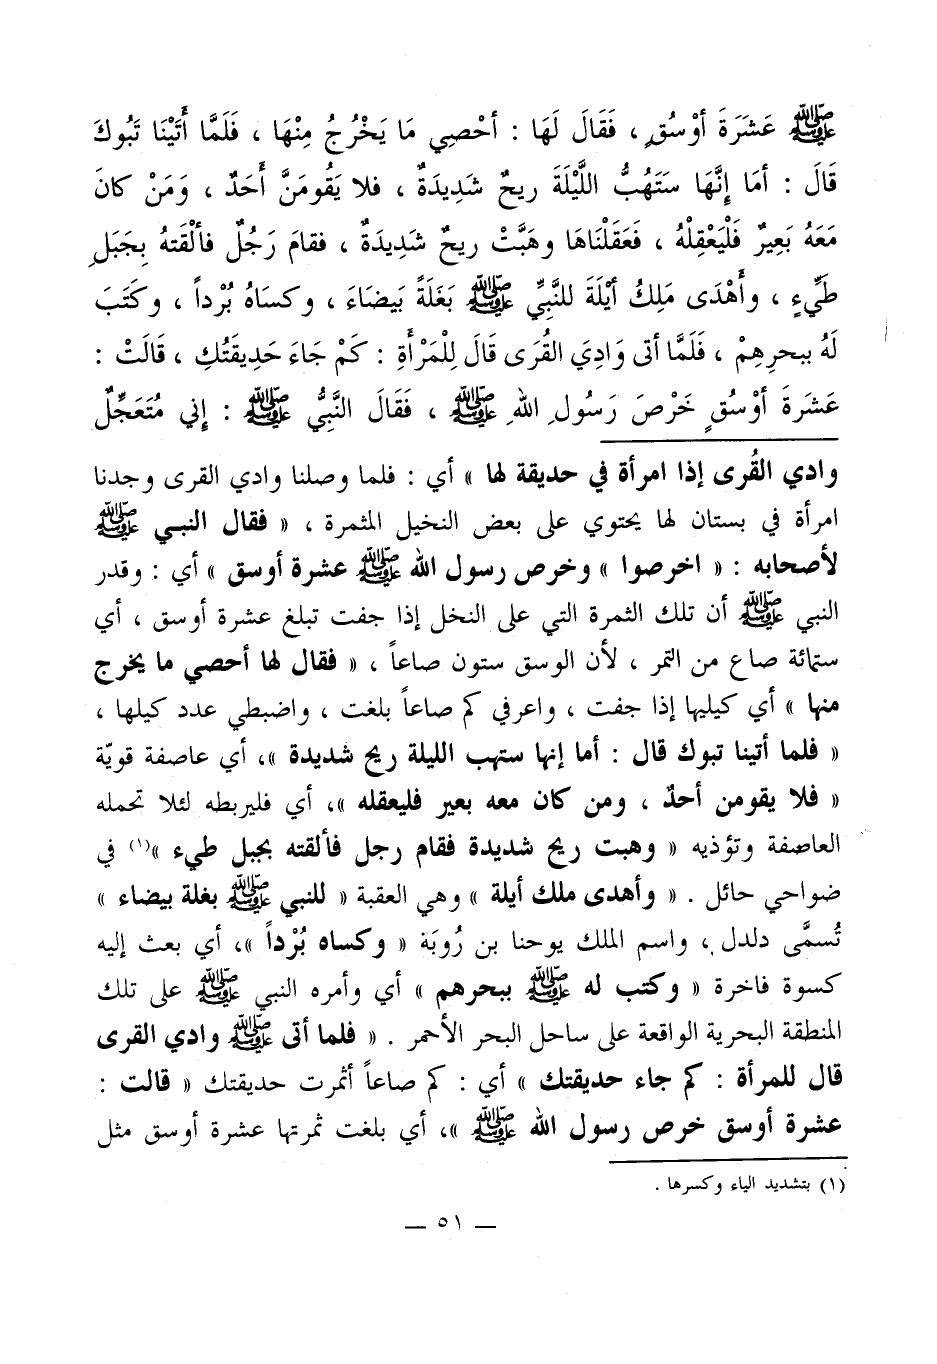 ﷺ عَشَرَةَ أوْسُقٍ ، فَقَالَ لَهَا : أحْصِي مَا يَخْرُجُ مِنْهَا ، فَلَمَّا أَتَيْنَا تَبُوكَ
قَالَ : أمَا إِنَّهَا سَتَهُبُّ اللَّيْلَةَ ريحٌ شَدِيدَةٌ ، فلا يَقُومَنَّ أَحَدٌ ، وَمَنْ كانَ
مَعَهُ بَعِيرٌ فَلْيَعْقِلْهُ ، فَعَقَلْنَاهَا وهَبَّتْ ريحٌ شَدِيدَةٌ ، فقامَ رَجُلٌ فألْقَتهُ بِجَبَلِ
طَيِّءٍ ، وأَهْدَى مَلِكُ أيْلَةَ للنَّبِيِّ ﷺ بَغلَةً بَيضَاءَ ، وكسَاهُ بُرْداً ، وكَتَبَ
لَهُ ببحرِهِمْ ، فَلَمَّا أتى وَادِيَ القُرَى قَالَ لِلمَرْأَةِ : كمْ جاءَ حَدِيقَتُكِ ، قَالَتْ :
عَشرَةَ أوْسُقٍ خَرْصَ رَسُولِ اللهِ ﷺ ، فَقَالَ النَّبِيُّ ﷺ : إني مُتَعَجِّلٌ
وادي القُرى إذا امرأة في حديقة لها » أي : فلما وصلنا وادي القرى وجدنا
امرأة في بستان لها يحتوي على بعض النخيل المثمرة ، « فقال النبي ﷺ
لأصحابه : « اخرصوا » وخرص رسول الله ﷺ عشرة أوسق » أي : وقدر
النبي ﷺ أن تلك الثمرة التي على النخل إذا جفت تبلغ عشرة أوسق ، أي
ستمائة صاع من التمر ، لأن الوسق ستون صاعاً ، « فقال لها أحصي ما يخرج
منها » أي كيليها إذا جفت ، واعرفي كم صاعاً بلغت ، واضبطي عدد كيلها ،
« فلما أتينا تبوك قال : أما إنها ستهب الليلة ريح شديدة »، أي عاصفة قويّة
« فلا يقومن أحدٌ ، ومن كان معه بعير فليعقله »، أي فليربطه لئلا تحمله
العاصفة وتؤذيه « وهبت ريح شديدة فقام رجل فألقته بجبل طيء »(١) في
ضواحي حائل . « وأهدى ملك أيلة » وهي العقبة « للنبي ﷺ بغلة بيضاء »
تُسمَّى دلدل ، واسم الملك يوحنا بن رُوبَة « وكساه بُرْداً »، أي بعث إليه
كسوة فاخرة « وكتب له ﷺ ببحرهم » أي وأمره النبي ﷺ على تلك
المنطقة البحرية الواقعة على ساحل البحر الأحمر . « فلما أتى ﷺ وادي القرى
قال للمرأة : كم جاء حديقتك » أي : كم صاعاً أثمرت حديقتك « قالت :
عشرة أوسق خرص رسول الله ﷺ »، أي بلغت ثمرتها عشرة أوسق مثل
(١) بتشديد الياء وكسرها .
— ٥١ —